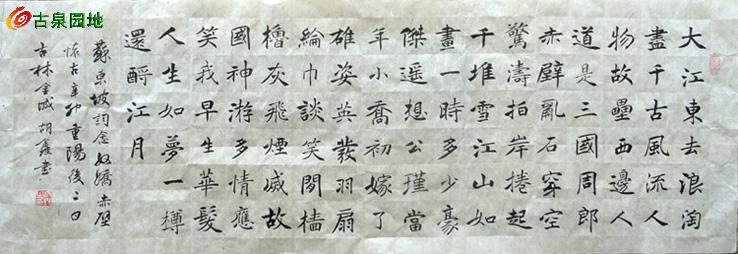 古泉园地
大江東去浪淘
盡千古風流人
物故壘西邊人
道是三國周郎
赤壁亂石穿空
驚濤拍岸捲起
千堆雪江山如
畫一時多少豪
傑遥想公瑾當
年小喬初嫁了
雄姿英發羽扇
綸巾談笑間檣
櫓灰飛煙滅故
國神游多情應
笑我早生華髮
人生如夢一樽
還酹江月
蘇東坡詞念奴嬌赤壁
懷古辛卯重陽後三日
吉林金城胡書